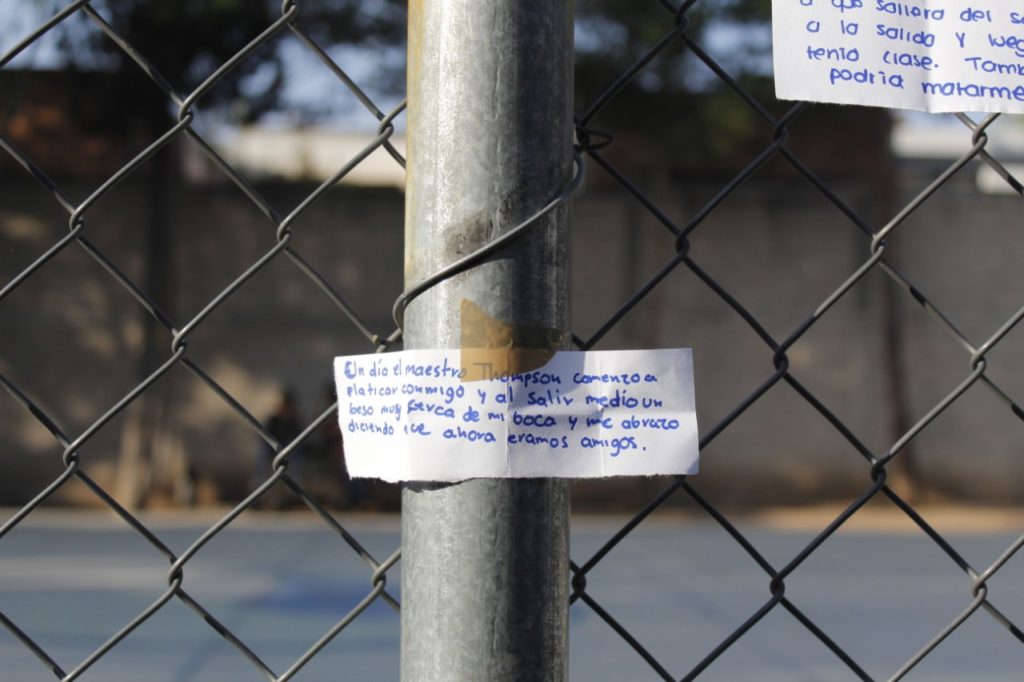 a que saliera del
a la salida y
tenia clase.
podria matarme
Un día el maestro Thompson comenzo a
platicar conmigo y al salir me dio un
beso muy serca de mi boca y me abrazo
diciendo que ahora eramos amigos.